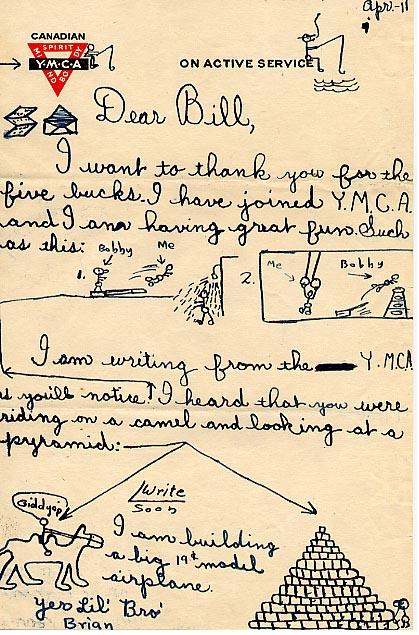 Apr-11
CANADIAN
SPIRIT
MIND
BODY
Y·M·C·A
ON ACTIVE SERVICE
Dear Bill,
I want to thank you for the
five bucks. I have joined Y.M.C.A
and I am having great fun. Such
as this:
Bobby
Me
1.
2.
Me
Bobby
I am writing from the Y.M.CA
as you'll notice! I heard that you were
riding on a camel and looking at a
pyramid:
Giddyap
Write
Soon
I am building
a big 19¢ model
airplane.
Yer Lil' Bro'
Brian